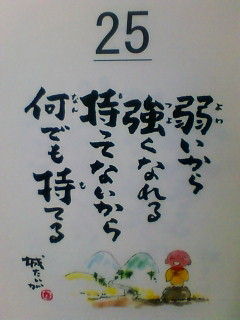 25
弱いから
強くなれる
持ってないから
何でも持てる